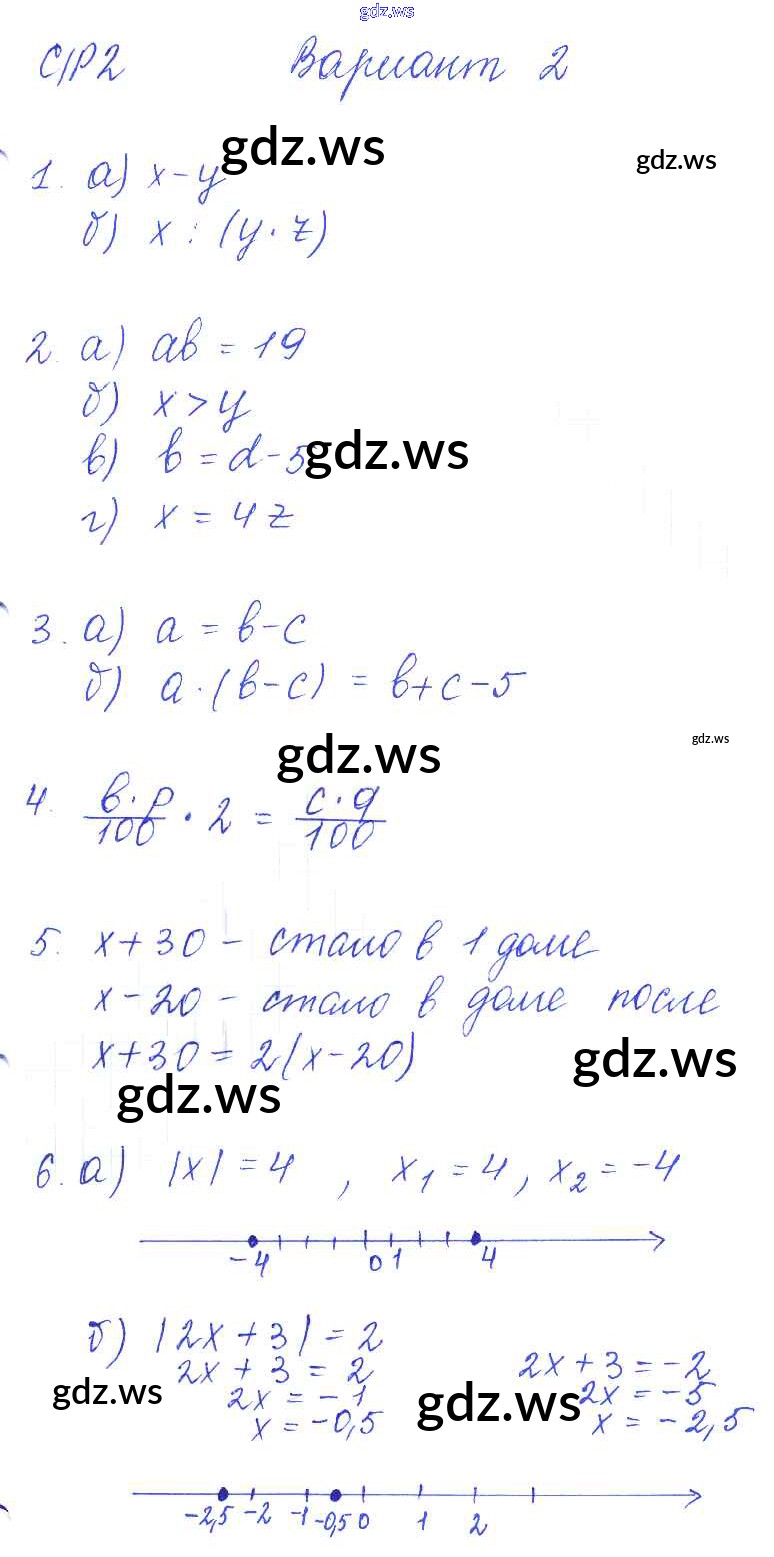 gdz.ws
С/Р2 Вариант 2
gdz.ws
gdz.ws
1. а) x - y
б) x : (y · z)
2. а) ab = 19
б) x > y
в) b = d - 5
gdz.ws
г) x = 4z
3. а) a = b - c
б) a · (b - c) = b + c - 5
gdz.ws
gdz.ws
4. b·p/100 · 2 = c·q/100
5. x + 30 - стало в 1 доме
x - 20 - стало в доме после
x + 30 = 2(x - 20)
gdz.ws
gdz.ws
6. а) |x| = 4 , x₁ = 4, x₂ = -4
-4 0 1 4
б) |2x + 3| = 2
2x + 3 = 2 2x + 3 = -2
2x = -1 2x = -5
x = -0,5 x = -2,5
gdz.ws
gdz.ws
-2,5 -2 -1 -0,5 0 1 2